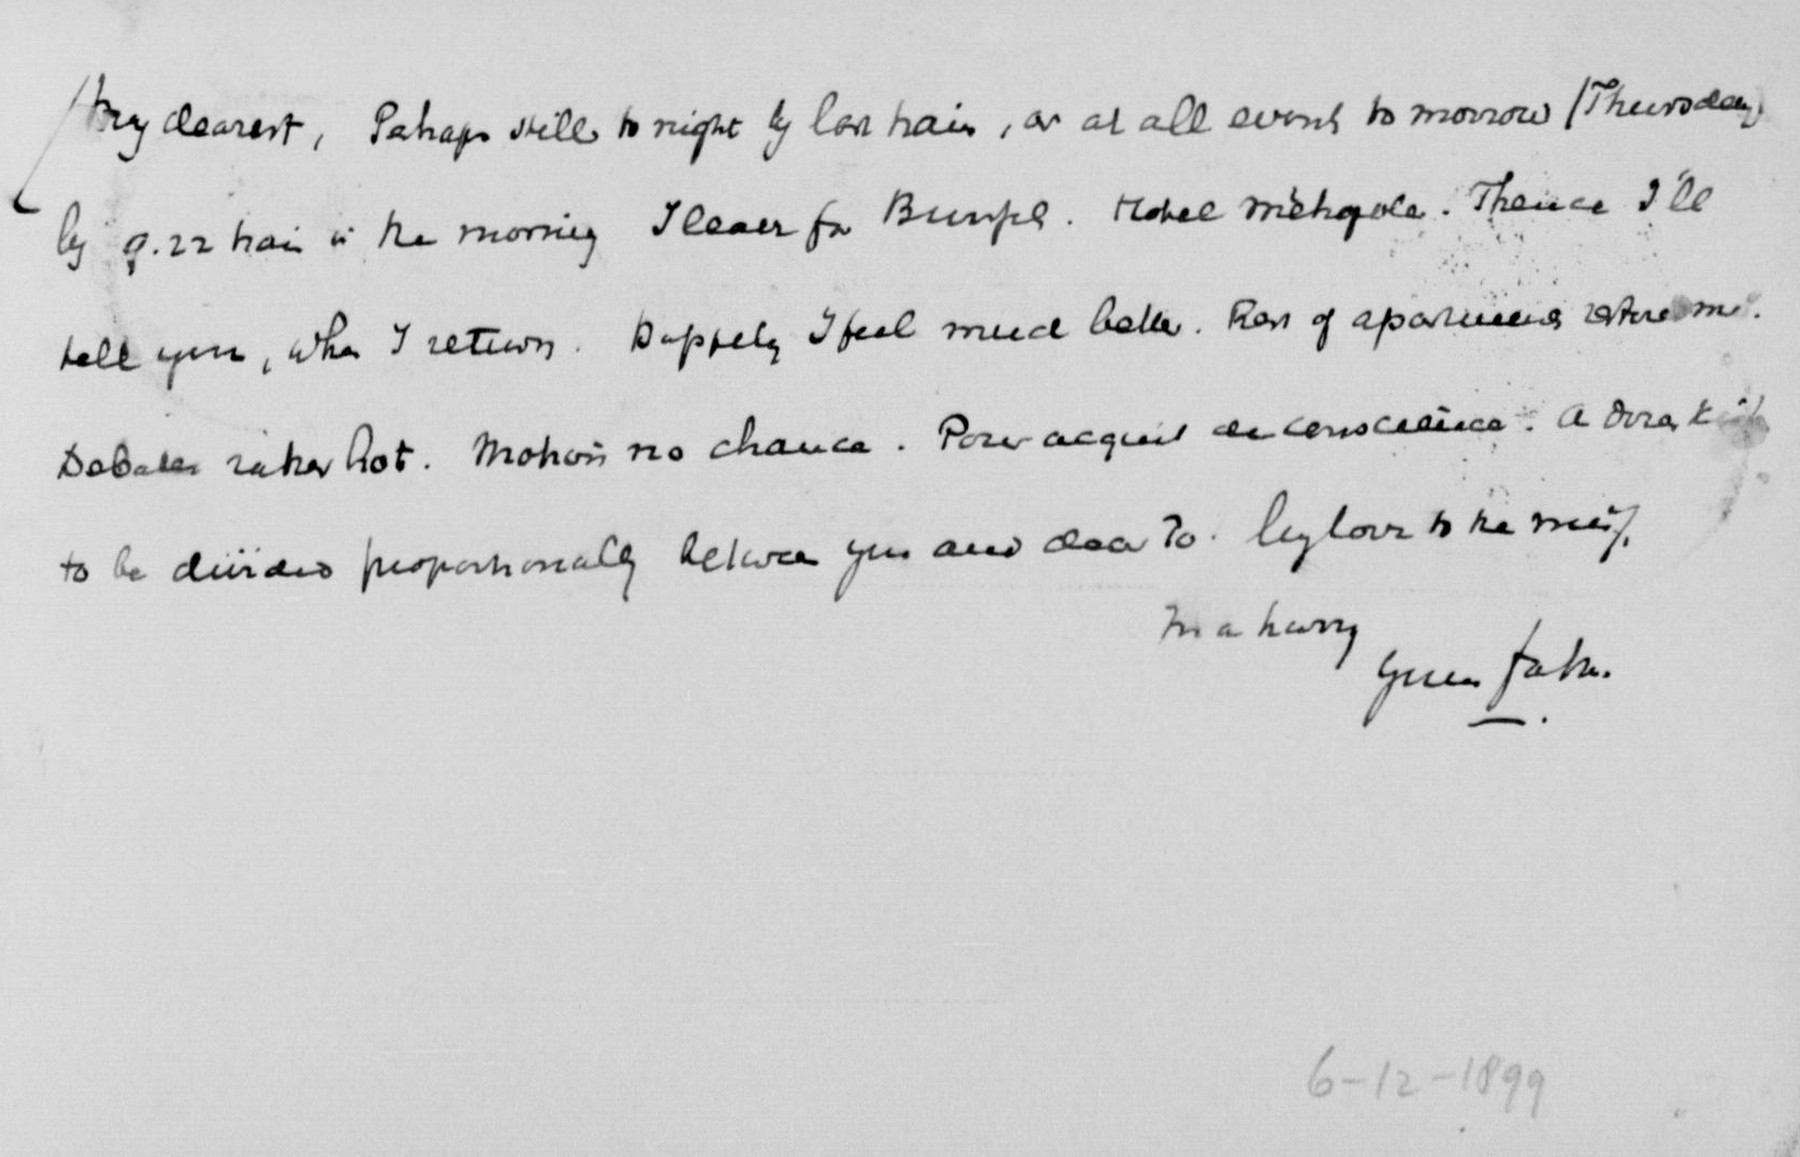 My dearest, Perhaps still to night by last train, or at all events to morrow (Thursday)
by 9.22 train in the morning I leave for Brussels. Hotel Métropole. Thence I'll
tell you, when I return. Happily I feel much better. Rest of apartment restored me.
Debates rather hot. Motion no chance. Pour acquit de conscience. A dozen
to be divided proportionally between you and dear To. My love to the
In a hurry
Your father.
6-12-1899